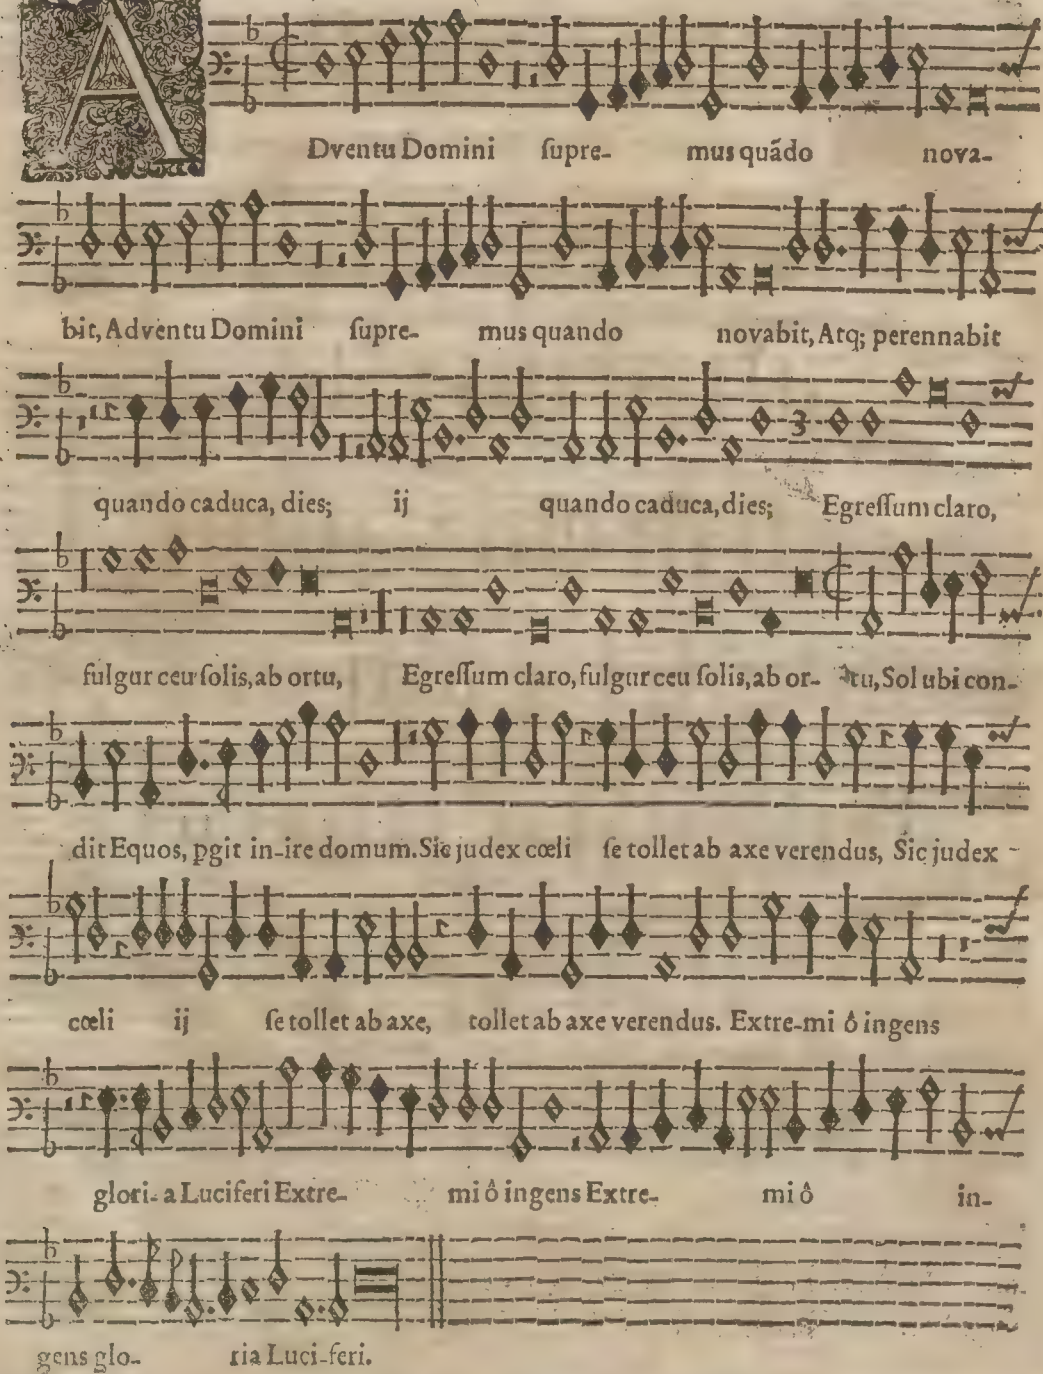 A
Dventu Domini ſupre- mus quãdo nova-
bit, Adventu Domini ſupre- mus quando novabit, Atq; perennabit
quando caduca, dies; ij quando caduca, dies; Egreſſum claro,
fulgur ceu ſolis, ab ortu, Egreſſum claro, fulgur ceu ſolis, ab or- tu, Sol ubi con-
dit Equos, pgit in-ire domum. Sic judex cœli ſe tollet ab axe verendus, Sic judex
cœli ij ſe tollet ab axe, tollet ab axe verendus. Extre-mi ô ingens
glori- a Luciferi Extre- mi ô ingens Extre- mi ô in-
gens glo- ria Luci-feri.